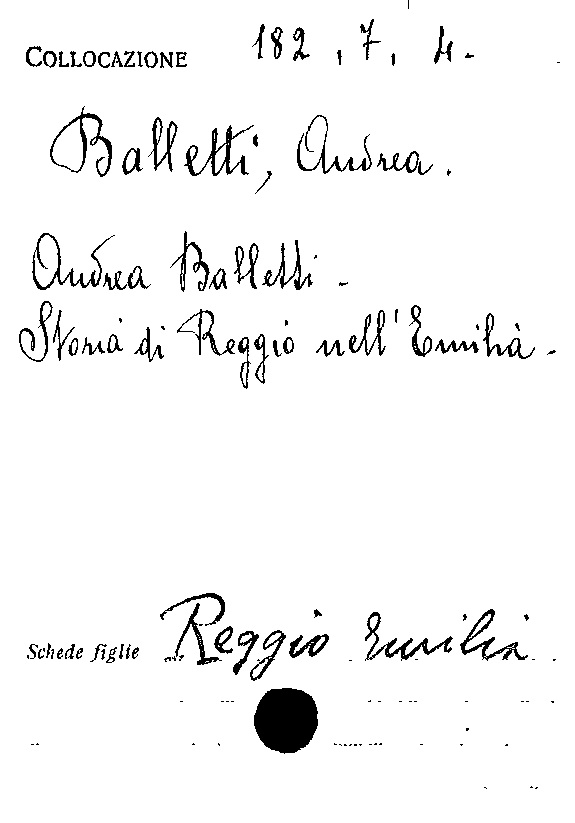 COLLOCAZIONE 182.7.4.
Balletti, Andrea.
Andrea Balletti -
Storia di Reggio nell'Emilia -
Schede figlie Reggio Emilia